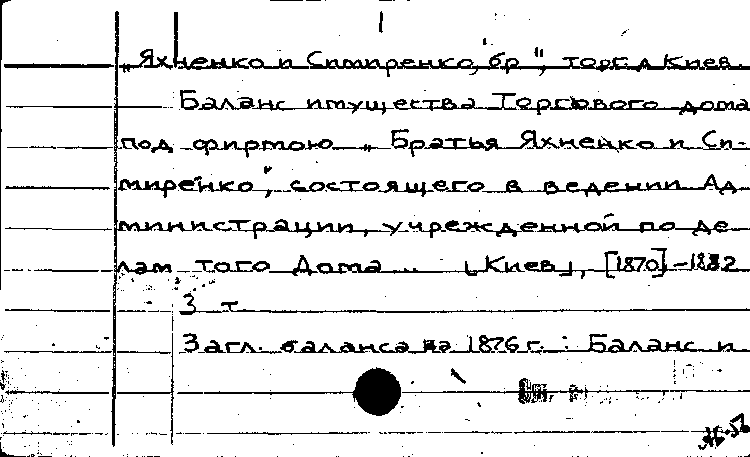 „Яхненко и Симиренко, бр.", торг. д. Киев.
Баланс имущества Торгового дома
под фирмою „Братья Яхненко и Си-
миренко", состоящего в ведении Ад-
министрации, учрежденной по де-
лам того Дома... [Киев], [1870]-1882
3 т.
Загл. баланса за 1876 г. : Баланс и
См.